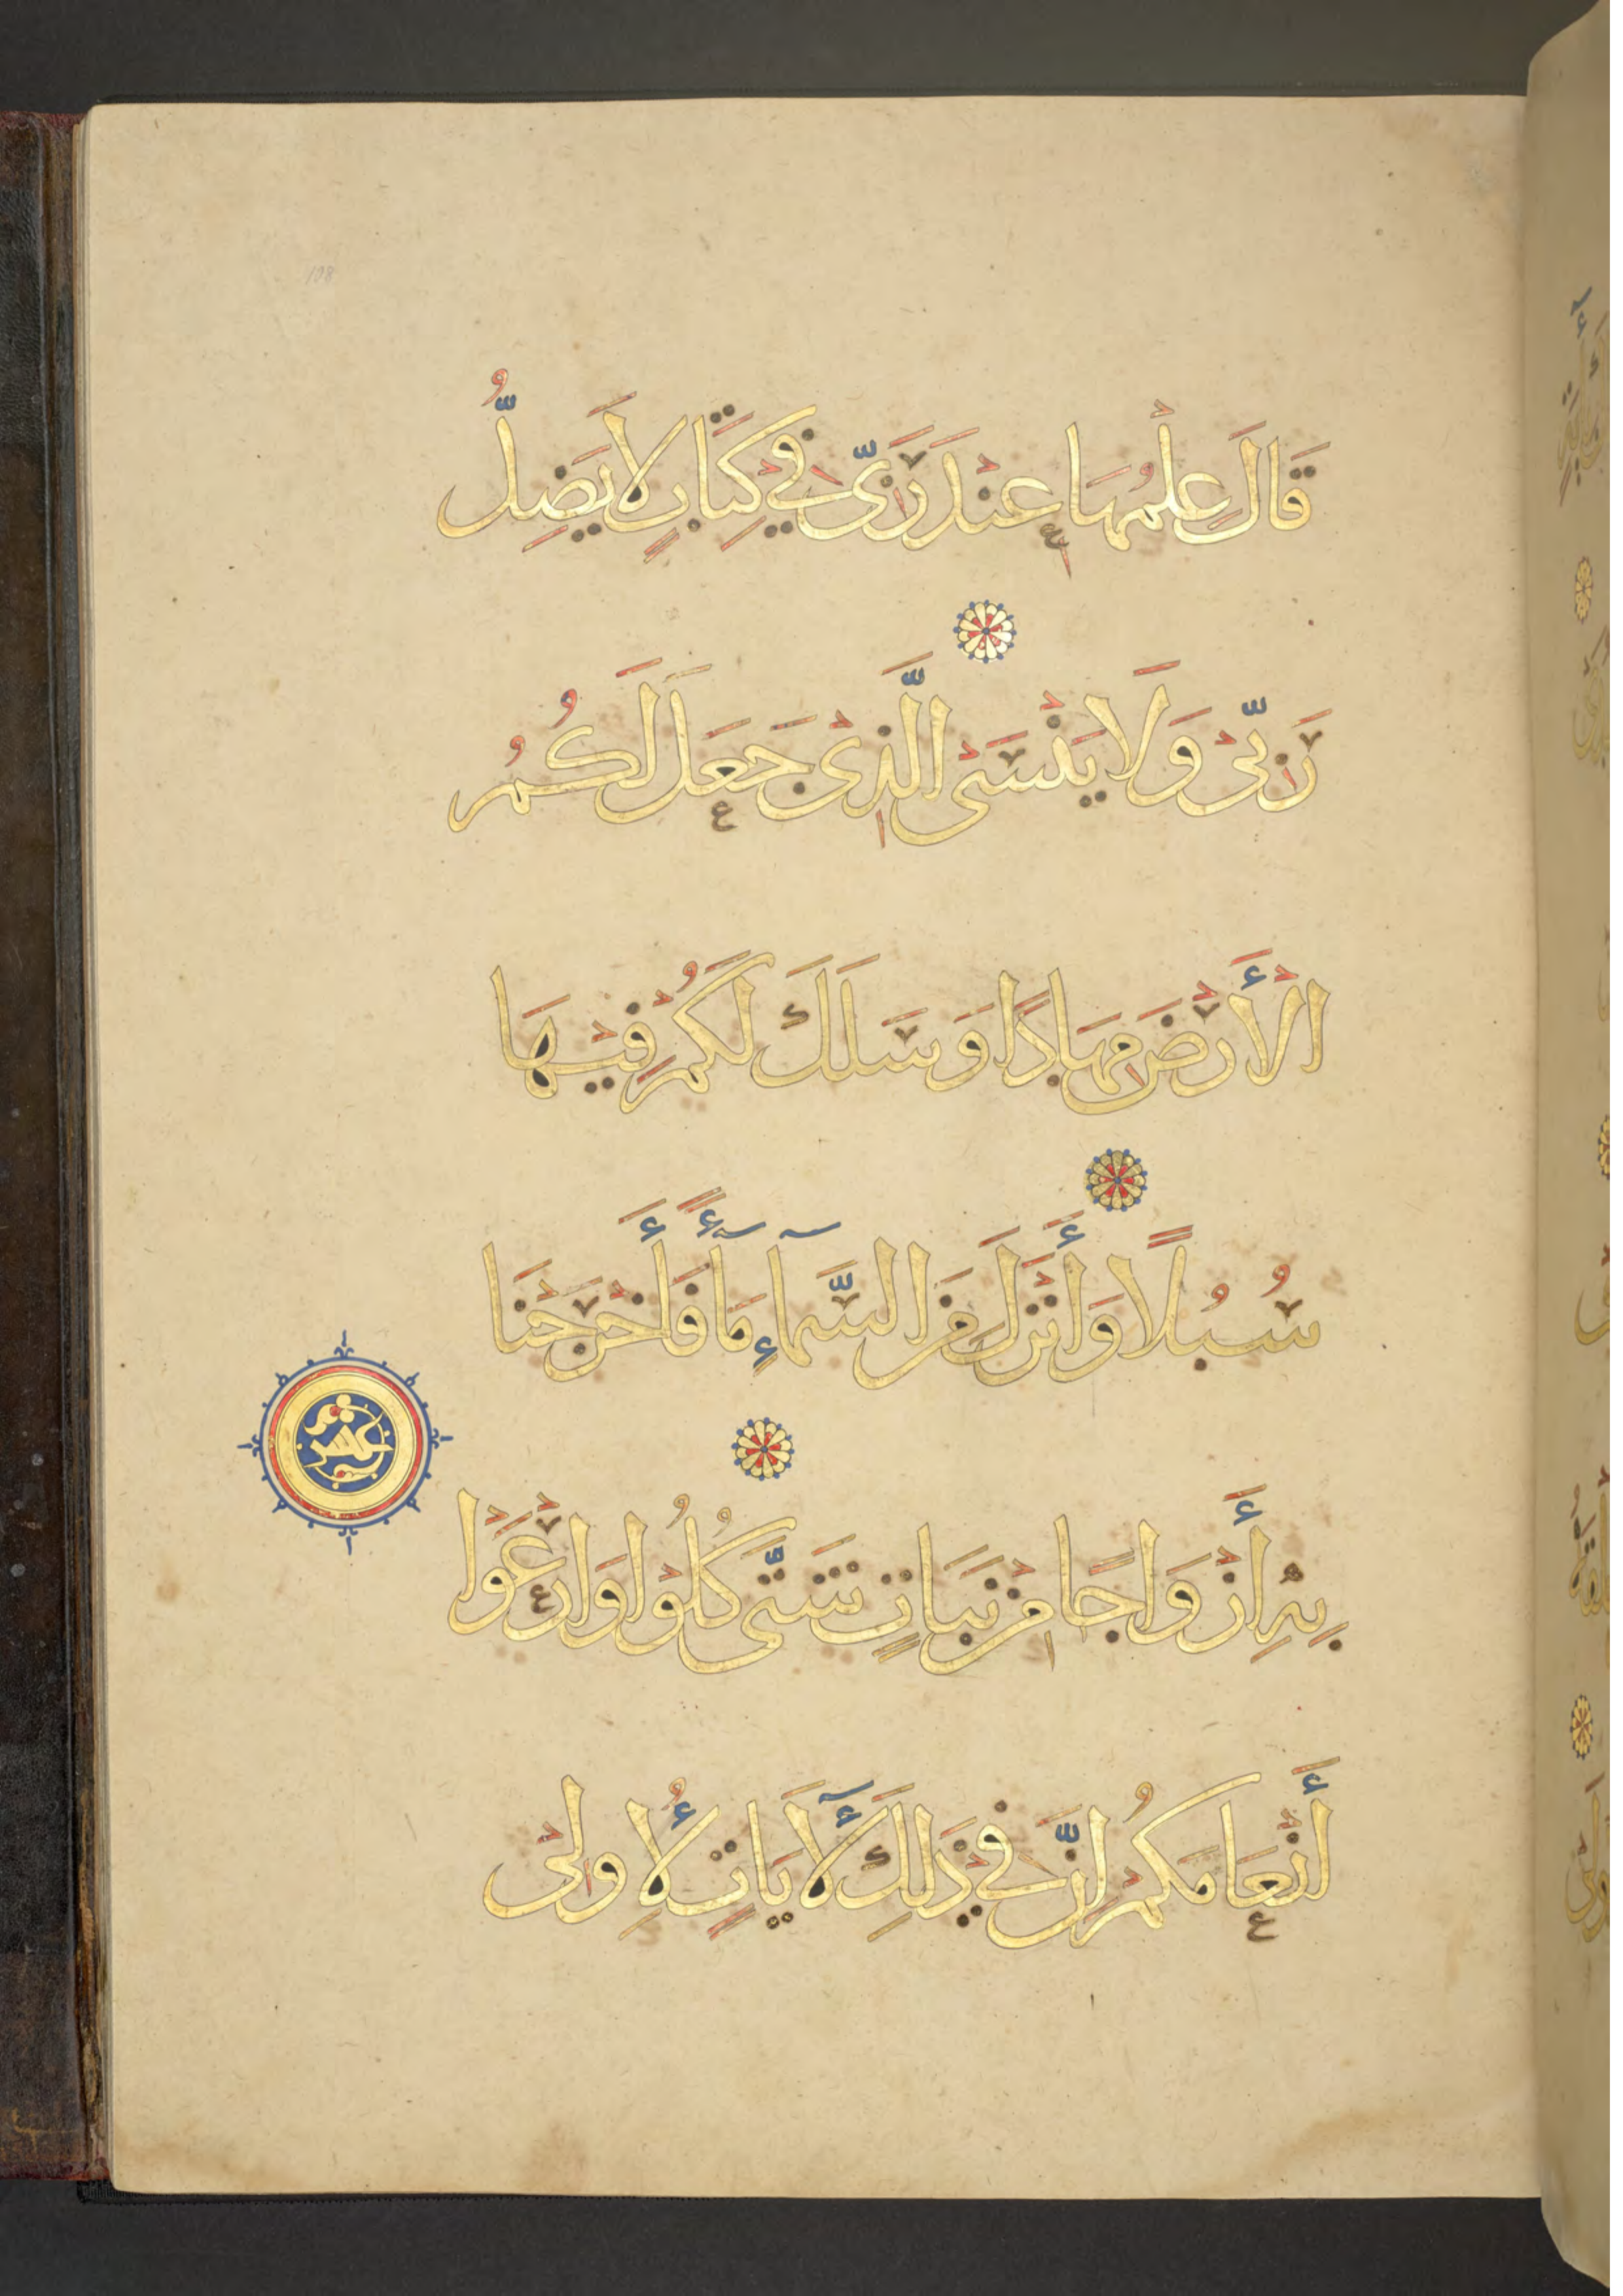 108
قَالَ عِلْمُهَا عِنْدَ رَبِّيْ فِيْ كِتَابٍ لَا يَضِلُّ
رَبِّيْ وَلَا يَنْسَىْ الَّذِيْ جَعَلَ لَكُمُ
الْأَرْضَ مِهَادًا وَسَلَكَ لَكُمْ فِيْهَا
سُبُلًا وَأَنْزَلَ مِنَ السَّمَآءِ مَآءً فَأَخْرَجْنَا
عشر
بِهِ أَزْوَاجًا مِنْ نَبَاتٍ شَتَّى كُلُوْا وَارْعَوْا
أَنْعَامَكُمْ إِنَّ فِيْ ذَلِكَ لَأَيَاتٍ لِأُولِيْ